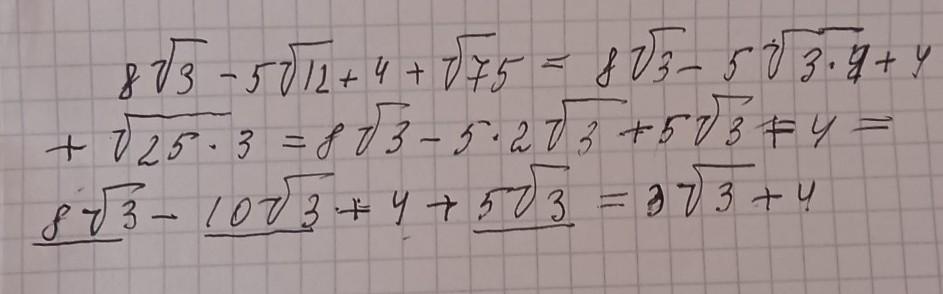 8√3 - 5√12 + 4 + √75 = 8√3 - 5√3·4 + 4
+ √25·3 = 8√3 - 5·2√3 + 5√3 + 4 =
8√3 - 10√3 + 4 + 5√3 = 3√3 + 4